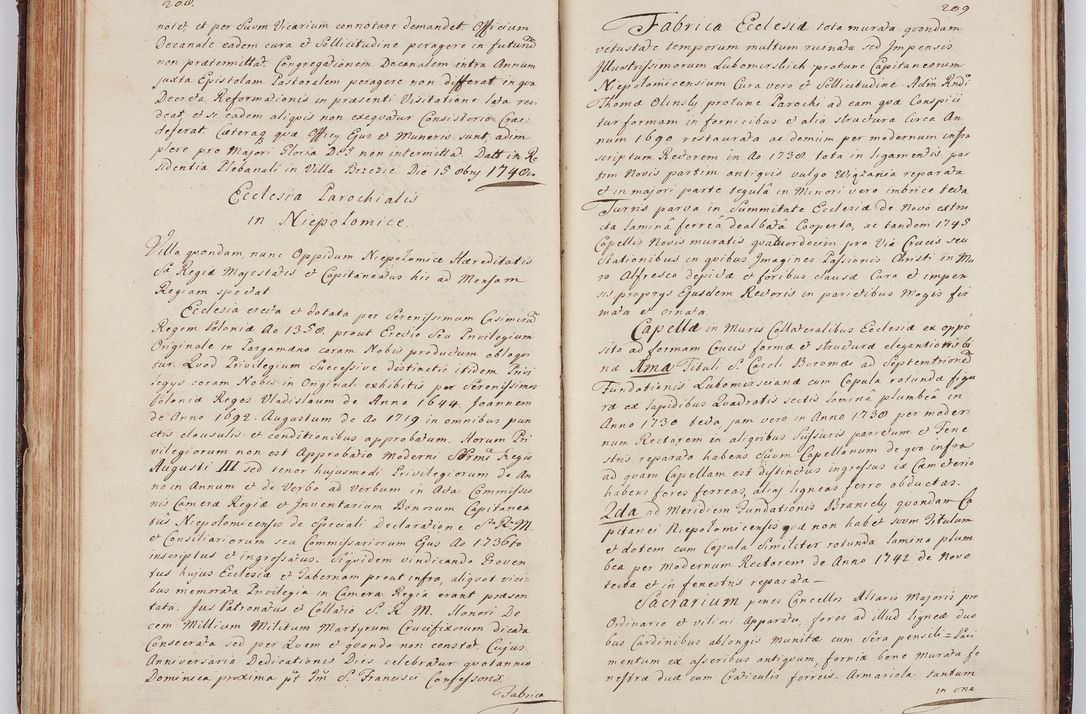 208.
notet, et per Suum Vicarium connotare demandet. Officium
Decanale eadem cura et Sollicitudine peragere in futurũ
non prætermittat Congregationem Decanalem intra Annum
juxta Epistolam Pastoralem peragere non differat in qua
Decreta Reformationis in præsenti Visitatione lata
deat, et si eadem aliquis non exequatur Consistorio
deferat. Cæteraq quæ Officy Ejus et Muneris sunt, adim
plere pro Majori Gloria DEI non intermittat. Datt in Re
sidentia Plebanali in Villa Brzezie Die 15 Obrij 1748vo
Ecclesia Parochialis
in Niepolomice.
Villa quondam, nunc Oppidum Niepolomice Hæreditatis
Sæ Regiæ Majestatis et Capitaneatus hic ad Mensam
Regiam spectat
Ecclesia erecta et dotata per Serenissimum Casimirũ
Regem Poloniæ Ao 1350. prout Erectio Seu Privilegium
Originale in Pargamæno coram Nobis productum obloqui
tur. Quod Privilegium Successive distinctis itidem Privi
legys coram Nobis in Originali exhibitis per Serenissimos
Poloniæ Reges Vladislaum de Anno 1644. Joannem
de Anno 1692. Augustum de Ao 1719 in omnibus pun
ctis clausulis et conditionibus approbatum. Horum Pri
vilegiorum non est Approbatio Moderni Sermi Regis
Augusti III sed tenor hujusmodi Privilegiorum de An
no in Annum et de Verbo ad Verbum in Acta Commissio
nis Cameræ Regiæ et Inventarium Bonorum Capitanea
tus Niepolomicensis de speciali Declaratione Sæ R. M.
et Consiliariorum seu Commissariorum Ejus Ao 1736to
inscriptus et ingrossatus. Siquidem vindicando Proven
tus hujus Ecclesiæ et Tabernam prout infra, aliquot vici
bus memorata Privilegia in Camera Regia erant præsen
tata. Jus Patronatus et Collatio S. R. M. Honori De
cem Millium Militum Martyrum Crucifixorum dicata
Consecrata sed per Quem et quando non constat. Cujus
Anniversaria Dedicationis Dies celebratur quotannis
Dominica proxima pt Fm S. Francisci Confessoris.
Fabrica
209
Fabrica Ecclesiæ tota murata quondam
vetustate temporum multum ruinata sed Impensis
Illustrissimorum Lubomirskich protunc Capitaneorum
Niepolomicensium Cura vero et Sollicitudine Adm Rndi
Thomæ Olinsky protunc Parochi ad eam quæ Conspici
tur formam in fornicibus et alia structura circa An
num 1690 restaurata ac demum per modernum infra
scriptum Rectorem in Ao 1738 tota in ligamentis par
tim Novis partim antiquis vulgo Wiązania reparata
et in majori parte tegula in Minori vero imbrice tecta
Turris parva in Summitate Ecclesiæ de Novo extru
cta lamina ferrea dealbata Cooperta, ac tandem 1745
Capellis Novis muratis quatuordecim pro Via Crucis seu
Stationibus in quibus Imagines Passionis Christi in Mu
ro Alfresco depictæ et foribus clausæ Cura et impen
sis proprys Ejusdem Rectoris in parietibus Magis fir
mata et ornata.
Capellæ in Muris Collateralibus Ecclesiæ ex oppo
sito ad formam Crucis forma et structura elegantioris bi
næ 1ma Tituli S. Caroli Boromæi ad Septemtrionẽ
Fundationis Lubomirscianæ cum Copula rotunda figu
ra ex lapidibus Quadratis sectis lamina plumbea in
Anno 1730 tecta, jam vero in Anno 1738 per moder
num Rectorem in aliquibus fissuris parietum et Fene
stris reparata habens Suum Capellanum de quo infra
ad quam Capellam est distinctus ingressus ex Cæmeterio
habens fores ferreas, alias ligneas ferro obductas.
2da ad Meridiem Fundationis Branicky quondam Ca
pitanei Niepolomicensis quæ non habet suum Titulum
et dotem cum Copula Similiter rotunda lamina plum
bea per Modernum Rectorem de Anno 1742 de Novo
tecta et in fenestris reparata
Sacrarium penes Cancellos Altaris Majoris pro
Ordinario et viliori Apparatu, fores ad illud ligneæ duo
bus Cardinibus oblongis munitæ cum Sera pensili Pavi
mentum ex asseribus antiquum, fornix bene Murata fe
nestræ duæ cum Craticulis ferreis. Armariola tantum
in una